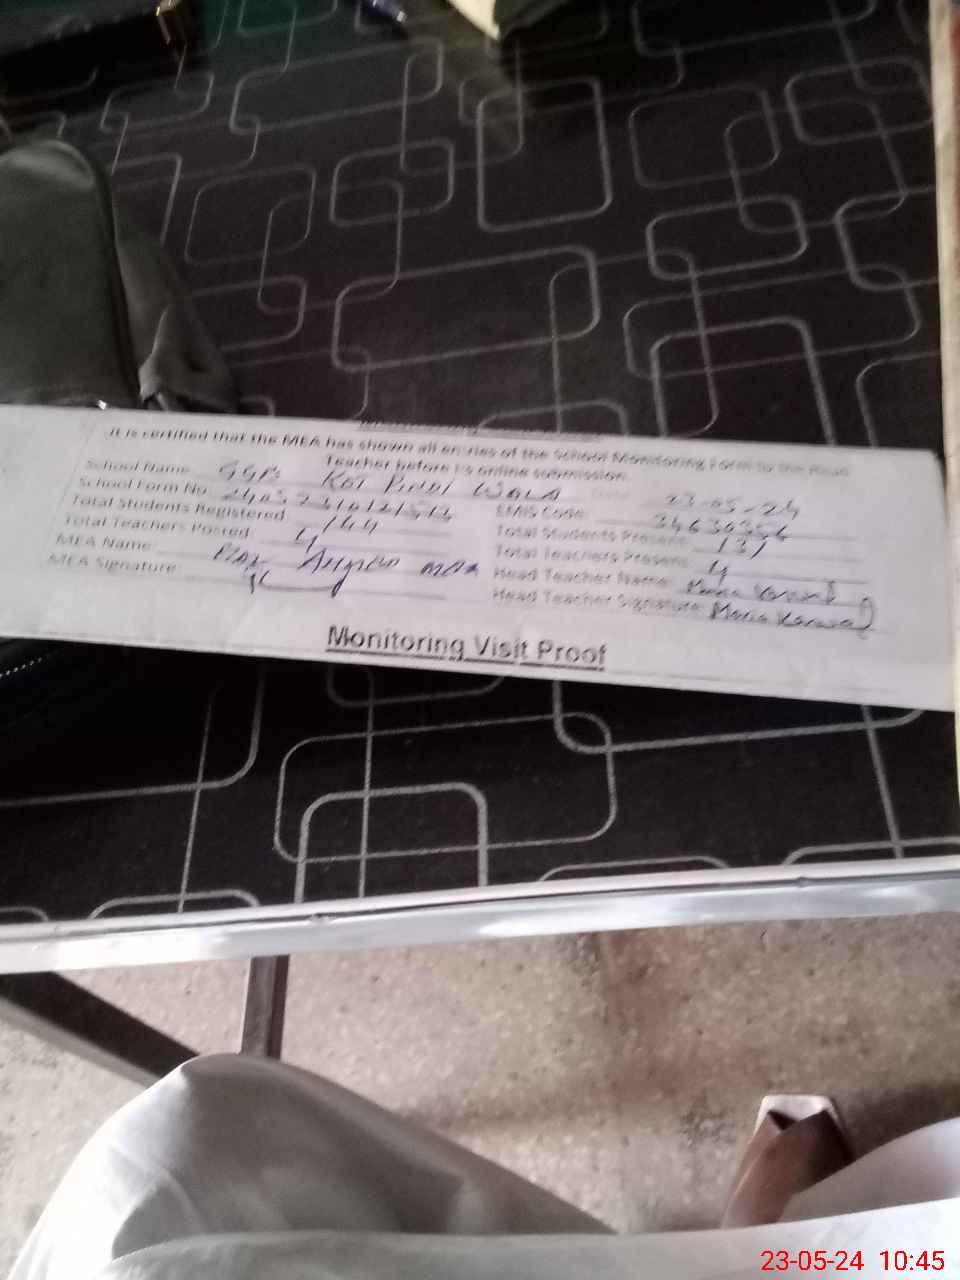 It is certified that the MEA has shown all entries of the School Monitoring Form to the Head
Teacher before its online submission.
School Name: GGPS KOT PINDI WALA Date: 23-05-24
School Form No: EMIS Code: 34630356
Total Students Registered: 144 Total Students Present: 131
Total Teachers Posted: 4 Total Teachers Present: 4
MEA Name: MEA Head Teacher Name:
MEA Signature: Head Teacher Signature: Maria Kanwal
Monitoring Visit Proof
23-05-24 10:45